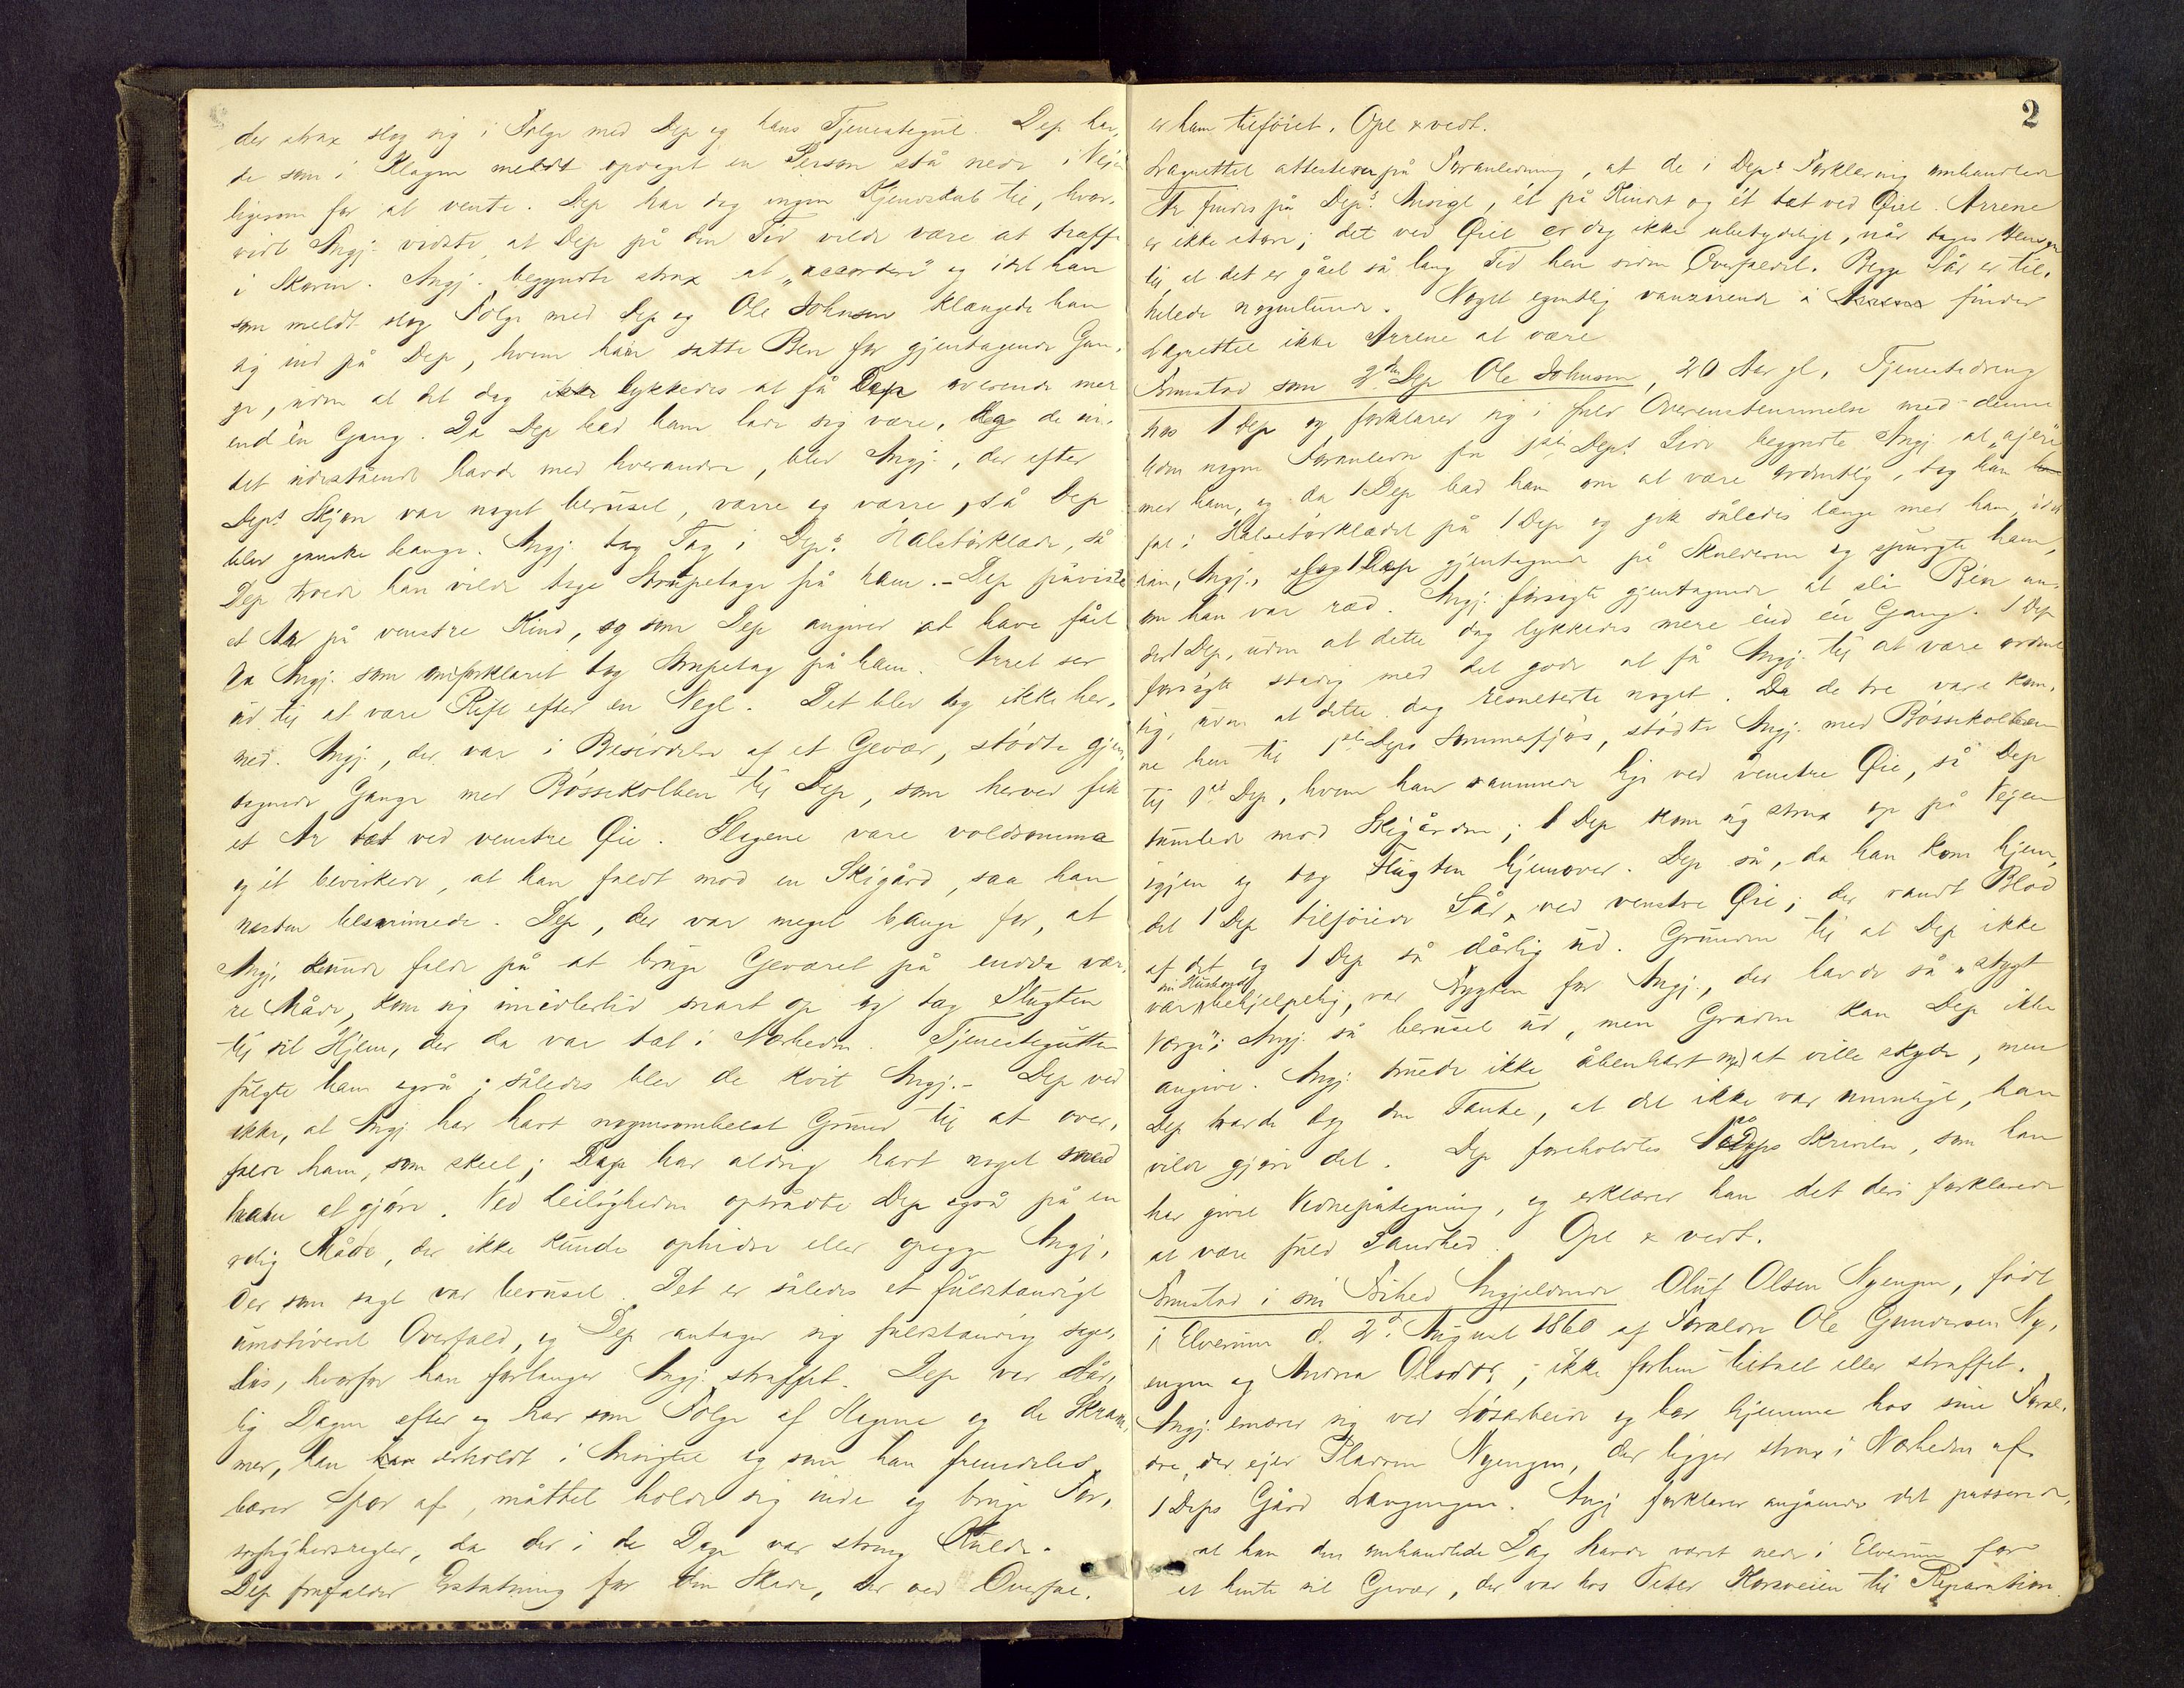 der strax slog sig i Følge med Dep og hans Tjenestegut. Dep hav-
de som i Klagen meldt opdaget en Person stå nede i Vejen
ligesom for at vente. Dep har dog ingen Kjendskab til, hvor-
vidt Angj. vidste, at Dep på den Tid vilde være at træffe
i Skoven. Angj. begyndte strax at "accordere" og idet han
som meldt slog Følge med Dep og Ole Johnsen klængede han
sig ind på Dep, hvem han satte Ben for gjentagende Gan-
ge, uden at det dog ikke lykkedes at få Dep overende mer
end én Gang. Da Dep bad ham lade sig være, og de in-
tet udestående havde med hverandre, blev Angj., der efter
Deps Skjøn var noget beruset, værre og værre, så Dep
blev ganske bange. Angj. tog Tag i Deps Halstørklæde, så
Dep troede han vilde tage Strupetage på ham. - Dep påviste
et Ar på venstre Kind, og som Dep angiver at have fået
da Angj. som omforklaret tog Strupetag på ham. Arret ser
ud til at være Rift efter en Negl. Det blev dog ikke her-
med. Angj., der var i Besiddelse af et Gevær, stødte gjen-
tagende Gange med Bøssekolben til Dep, som herved fik
et Ar tæt ved venstre Øie. Slagene vare voldsomme
og ét bevirkede, at han faldt mod en Skigård, saa han
næsten besvimede. Dep, der var meget bange for, at
Angj. kunde falde på at bruge Geværet på endda vær-
re Måde, kom sig imidlertid snart op og tog Flugten
til sit Hjem, der da var tæt i Nærheden. Tjenestegutten
fulgte ham også; således blev de kvit Angj. - Dep ved
ikke, at Angj har havt nogensomhelst Grund til at over-
falde ham, som skeet; Dep har aldrig havt noget med
ham at gjøre. Ved Leiligheden optrådte Dep også på en
rolig Måde, der ikke kunde ophidse eller opegge Angj.
der som sagt var beruset. Det er således et fuldstændigt
umotiveret Overfald, og Dep antager sig fuldstændig sages-
løs, hvorfor han forlanger Angj. straffet. Dep var dår-
lig Dagen efter og har som Følge af Slagene og de Skram-
mer, han har erholdt i Ansigtet og som han fremdeles
bærer Spor af, måttet holde sig inde og bruge For-
sigtighedsregler, da der i de Dage var streng Kulde.
Dep frafalder Erstatning for den Skade, der ved Overfal-
2
er ham tilføiet. Opl & vedt.
Lagrettet attesterer på Foranledning, at de i Deps Forklaring omhandlede
Ar findes på Deps Ansigt, ét på Kindet og ét tæt ved Øiet. Arrene
er ikke store; det ved Øiet er dog ikke ubetydeligt, når tages Hensyn
til, at det er gået så lang Tid hen siden Overfaldet. Begge Sår er til-
helede nogenlunde. Noget egentlig vanzirende i finder
Lagrettet ikke Arrene at være
Fremstod som 2den Dep Ole Johnsen, 20 Aar gl., Tjenestedreng
hos 1 Dep og forklarer sig i fuld Overensstemmelse med denne
Uden nogen Foranledn fra 1ste Deps Side begyndte Angj at "ajere"
med ham, og da 1 Dep bad ham om at være ordentlig, tog han
fat i Halstørklædet på 1 Dep og gik således længe med ham, idet
han, Angj., slog 1 Dep gjentagende på Skulderen og spurgte ham,
om han var ræd. Angj. forsøgte gjentagende at slå Ben un-
der 1 Dep, uden at dette dog lykkedes mere end én Gang. 1 Dep
forsøgte stadig med det gode at få Angj. til at være ordent-
lig, uden at dette dog resulterte noget. Da de tre vare kom-
ne hen til 1ste Deps Sommerfjøs, stødte Angj. med Bøssekolben
til 1ste Dep, hvem han rammede lige ved venstre Øie, så Dep
tumlede mod Skigården; 1 Dep kom sig strax op på Vejen
igjen og tog Flugten hjemover. Dep så, da han kom hjem,
det 1 Dep tilføiede Sår ved venstre Øie; der randt Blod
af det og 1 Dep så dårlig ud. Grunden til at Dep ikke
var sin Husbond behjelpelig, var Frygten for Angj., der havde så "stygt
Verge"; Angj. så beruset ud, men Graden kan Dep ikke
angive. Angj. truede ikke åbenbart med at ville skyde, men
Dep havde dog den Tanke, at det ikke var umuligt, han
vilde gjøre det. Dep foreholdtes 1ste Deps Skrivelse, som han
har givet Vidnepåtegning, og erklærer han det deri forklarede
at være fuld Sandhed. Opl & vedt.
Fremstod i sin Frihed Angjeldende Oluf Olsen Nyengen, født
i Elverum d. 2d August 1860 af Forældre Ole Gundersen Ny-
engen og Andrea Olsdtr; ikke forhen tiltalt eller straffet.
Angj. ernærer sig ved Løsarbeide og bor hjemme hos sine Foræl-
dre, der ejer Pladsen Nyengen, der ligger strax i Nærheden af
1 Deps Gård Langengen. Angj forklarer angående det passerede,
at han den omhandlede Dag havde været nede i Elverum for
at hente sit Gevær, der var hos Peter Korsveien til Reparation.